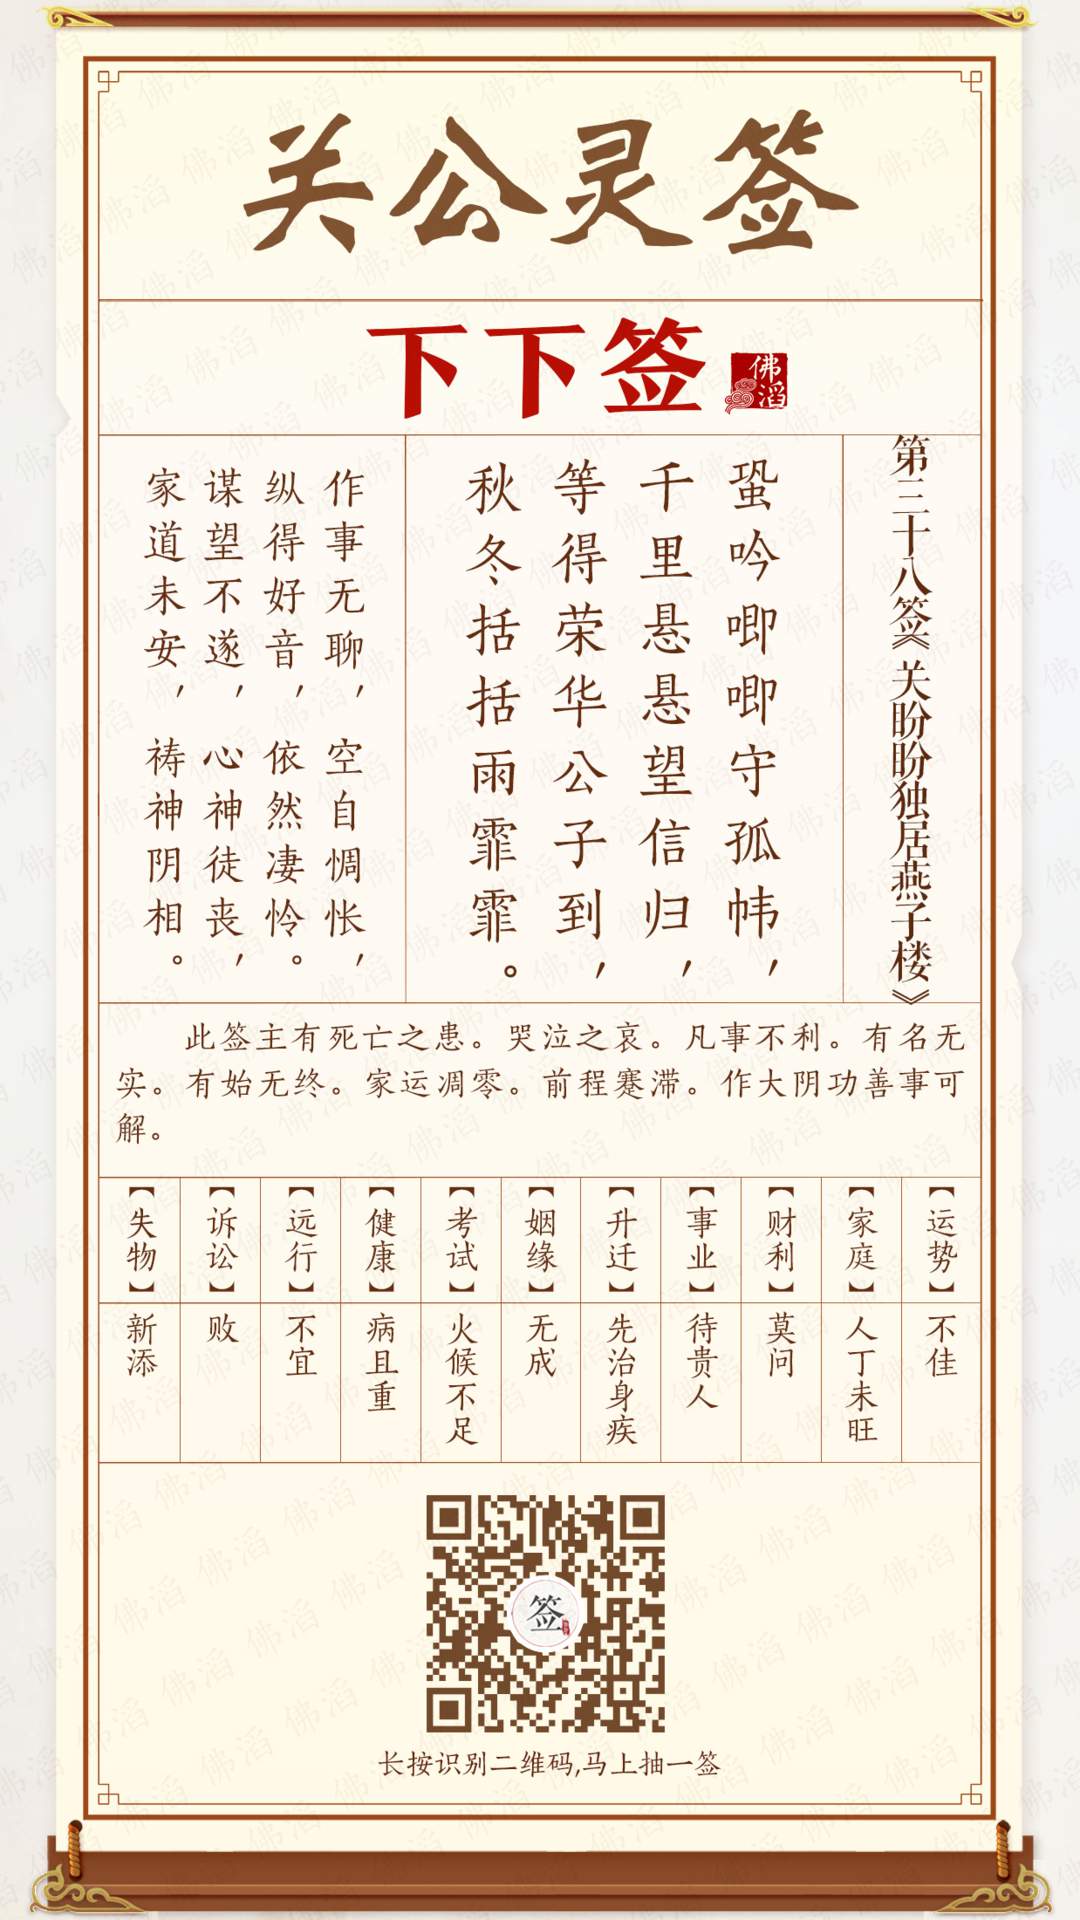 关公灵签
下下签
佛滔
第三十八签《关盼盼独居燕子楼》
蛩吟唧唧守孤帏，
千里悬悬望信归，
等得荣华公子到，
秋冬括括雨霏霏。
作事无聊，空自惆怅，
纵得好音，依然凄怜。
谋望不遂，心神徒丧，
家道未安，祷神阴相。
此签主有死亡之患。哭泣之哀。凡事不利。有名无
实。有始无终。家运凋零。前程蹇滞。作大阴功善事可
解。
【运势】
不佳
【家庭】
人丁未旺
【财利】
莫问
【事业】
待贵人
【升迁】
先治身疾
【姻缘】
无成
【考试】
火候不足
【健康】
病且重
【远行】
不宜
【诉讼】
败
【失物】
新添
签
长按识别二维码,马上抽一签